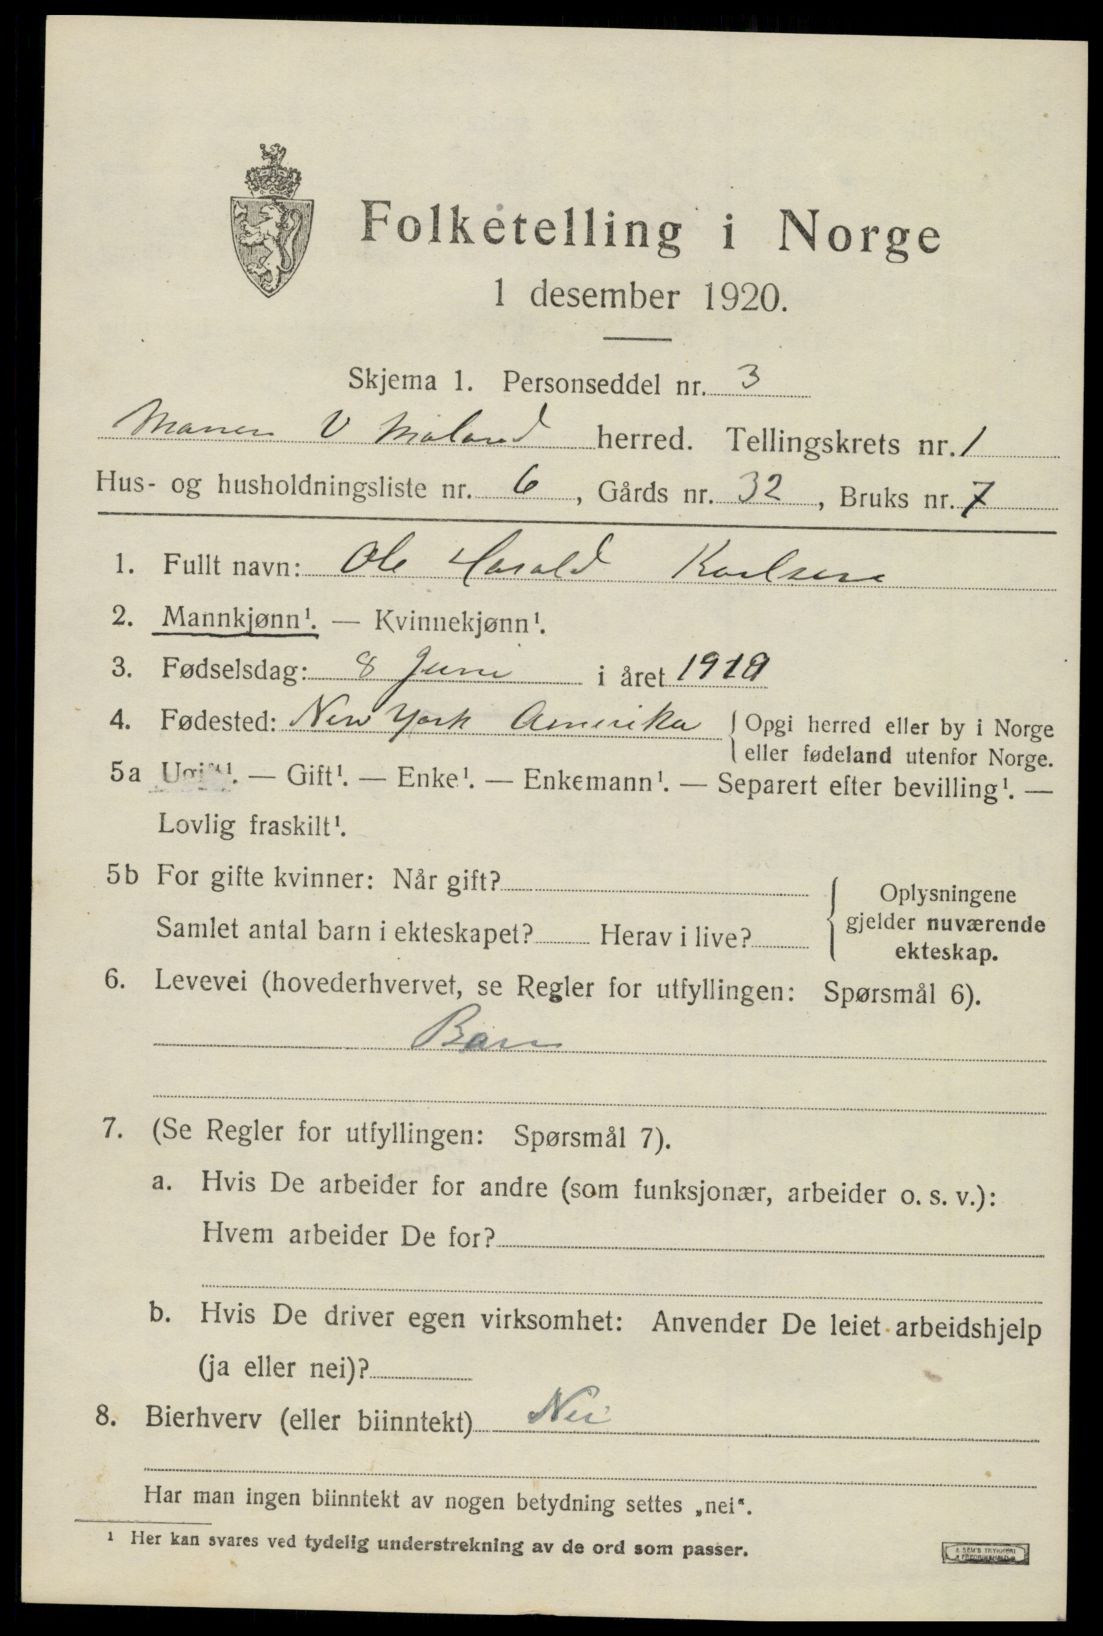 Folketelling i Norge
1 desember 1920.
Skjema 1. Personseddel nr. 3
V Moland herred. Tellingskrets nr. 1
Hus- og husholdningsliste nr. 6, Gårds nr. 32, Bruks nr. 7
1. Fullt navn: Ole Harald Karlsen
2. Mannkjønn¹. — Kvinnekjønn¹.
3. Fødselsdag: 8 Juni i året 1919
4. Fødested: New York Amerika { Opgi herred eller by i Norge
eller fødeland utenfor Norge.
5a Ugift¹. — Gift¹. — Enke¹. — Enkemann¹. — Separert efter bevilling¹. —
Lovlig fraskilt¹.
5b For gifte kvinner: Når gift?
Samlet antal barn i ekteskapet? Herav i live?
{ Oplysningene
gjelder nuværende
ekteskap.
6. Levevei (hovederhvervet, se Regler for utfyllingen: Spørsmål 6).
Barn
7. (Se Regler for utfyllingen: Spørsmål 7).
a. Hvis De arbeider for andre (som funksjonær, arbeider o. s. v.):
Hvem arbeider De for?
b. Hvis De driver egen virksomhet: Anvender De leiet arbeidshjelp
(ja eller nei)?
8. Bierhverv (eller biinntekt) Nei
Har man ingen biinntekt av nogen betydning settes „nei“.
¹ Her kan svares ved tydelig understrekning av de ord som passer.
A SEM'S TRYKKERI
FREDRIKSHALD